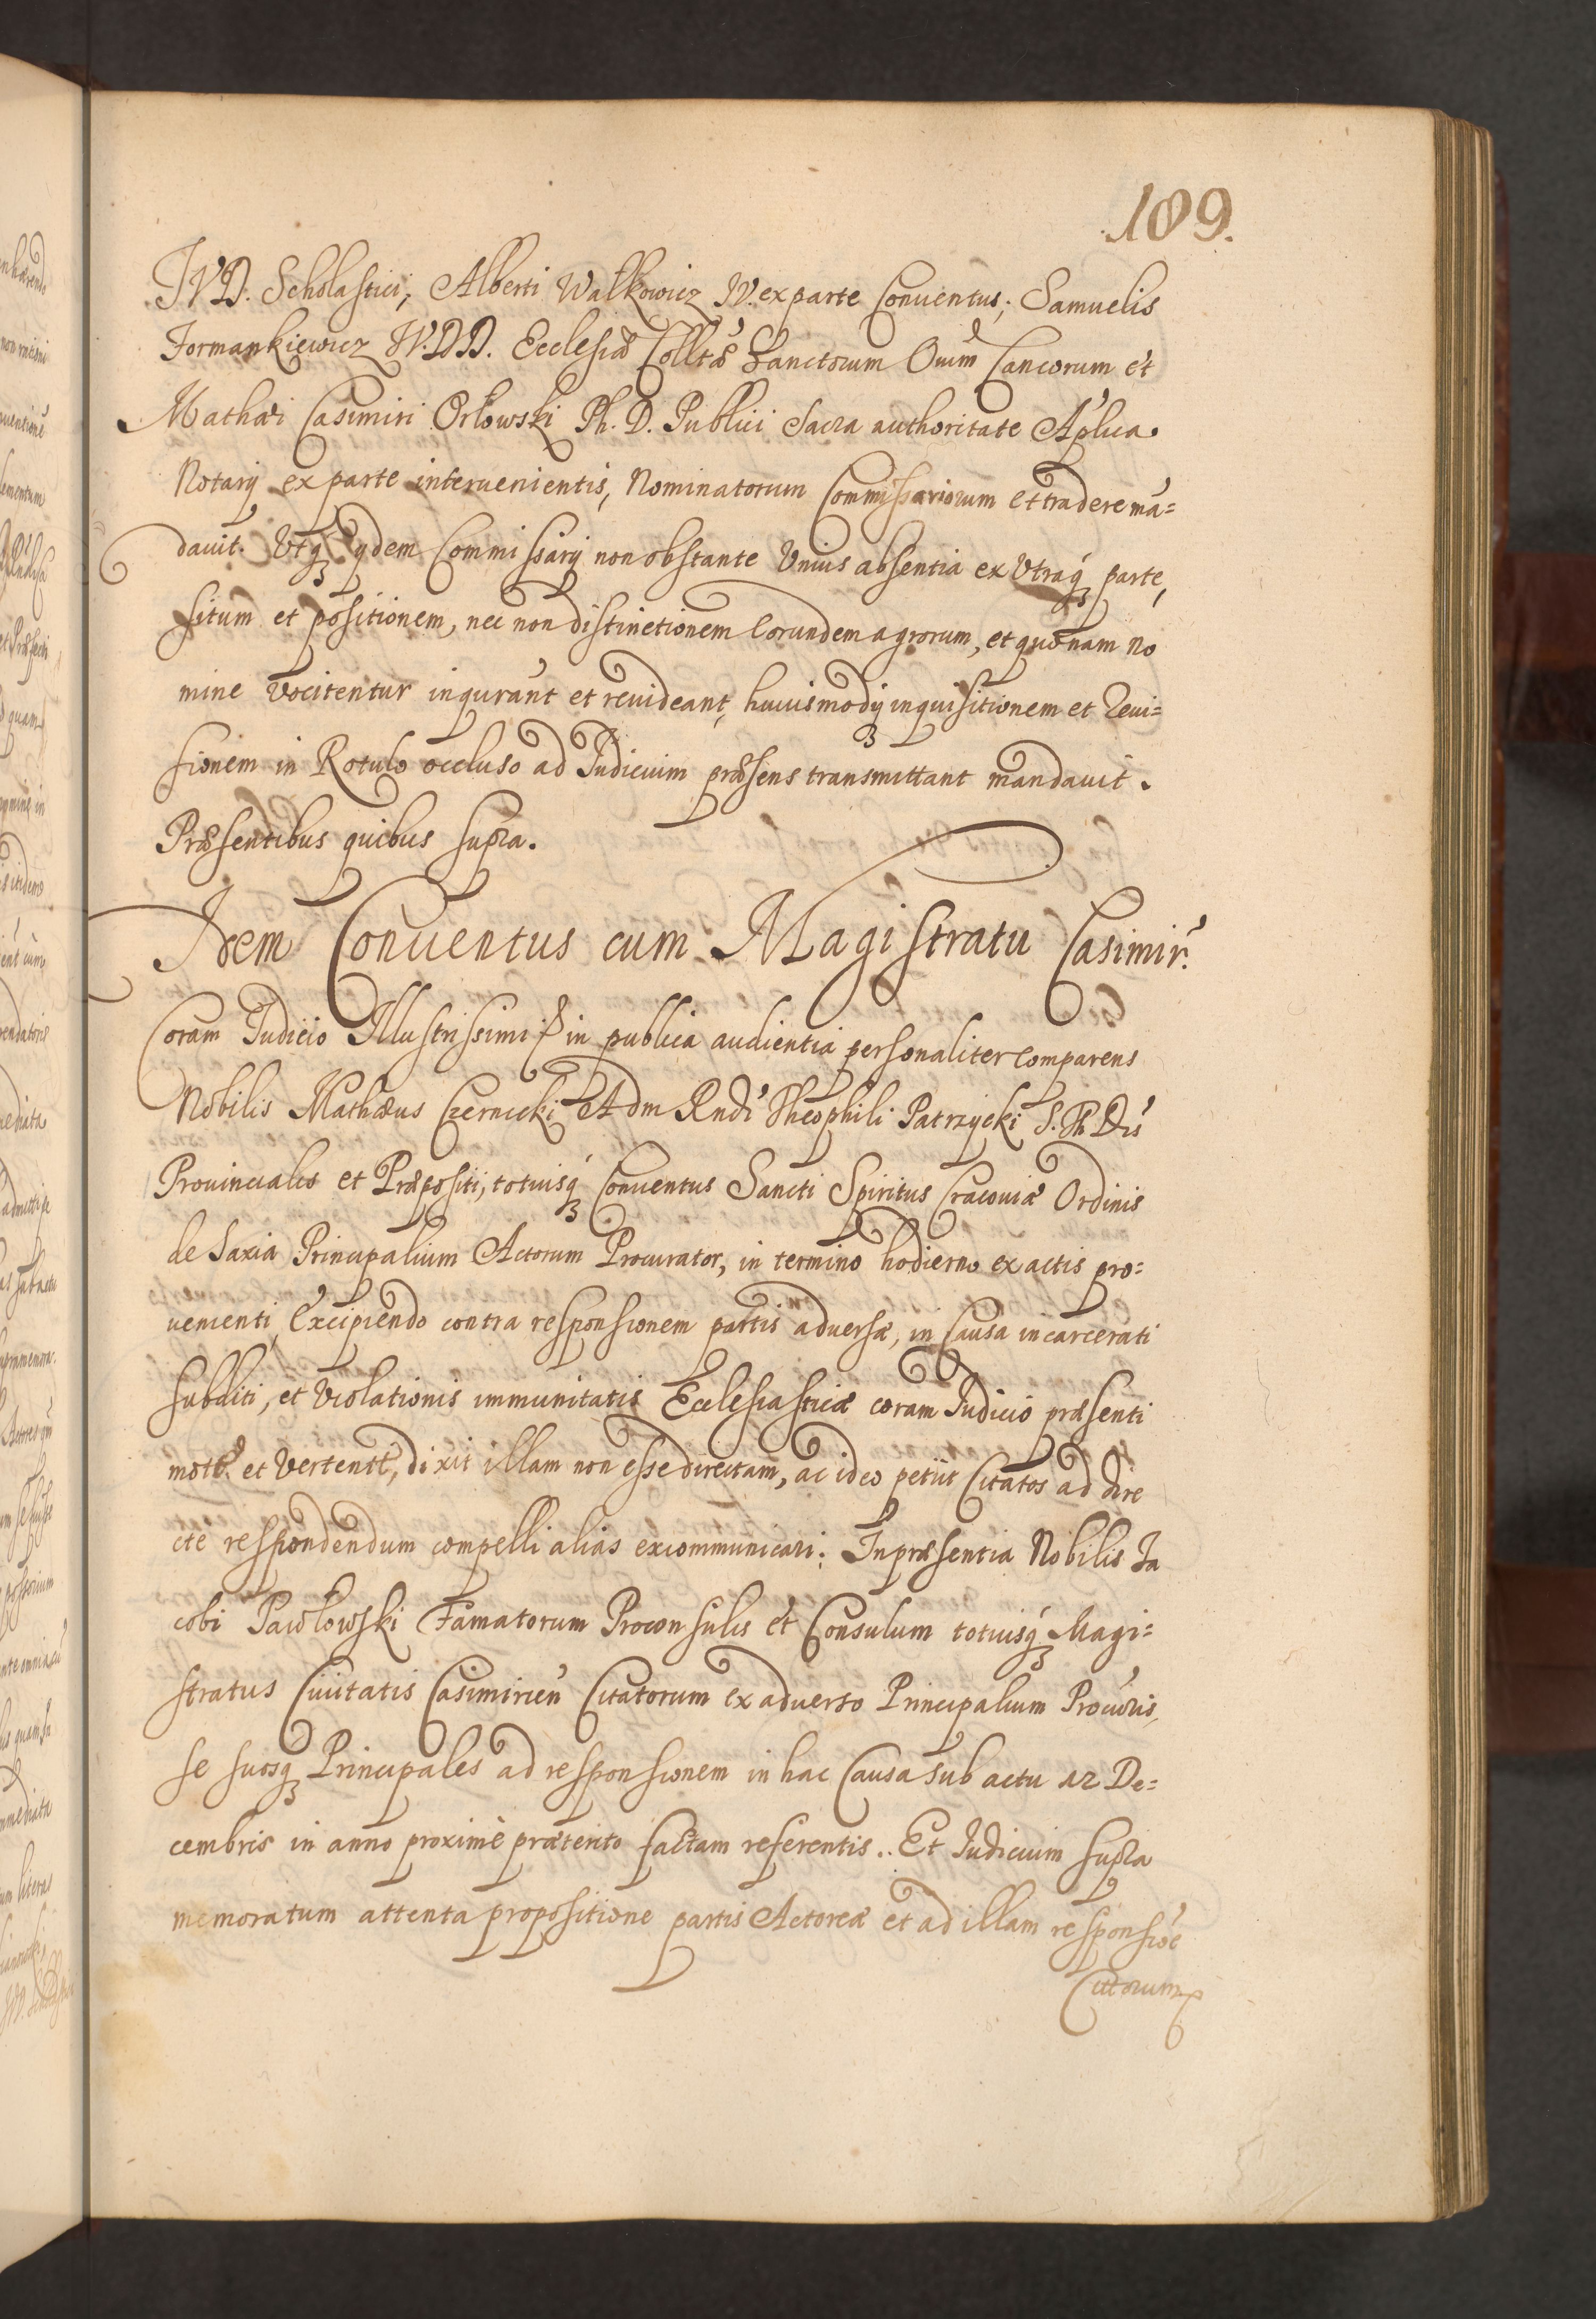 .109.
JVD. Scholastici, Alberti Walkowicz JV. ex parte Conuentus, Samuelis
Formankiewicz JV.DD. Ecclesiæ Colltæ Sanctorum Oium Cancorum et
Mathæi Casimiri Orłowski Ph. D. Publici Sacra authoritate Aplica
Notarij ex parte interuenientis, Nominatorum Commissariorum et tradere mã=
dauit. Utq ijdem Commissarij non obstante Unius absentia ex Utraq parte,
situm et positionem, nec non distinctionem Eorundem agrorum, et quonam No
mine Vocitentur inquirant et reuideant, huiusmodij inquisitionem et Reui=
sionem in Rotulo occluso ad Judicium præsens transmittant mandauit.
Præsentibus quibus supra.
Idem Conuentus cum Magistratu Casimir.
Coram Judicio Illustrissimi in publica audientia personaliter Comparens
Nobilis Mathæus Czernicki Adm Rndi Theophili Patrzycki S. Th Dris
Prouincialis et Præpositi, totiusq Conuentus Sancti Spiritus Cracouiæ Ordinis
de Saxia Principalium Actorum Procurator, in termino hodierno ex actis pro=
uenienti, Excipiendo contra responsionem partis aduersæ, in Causa incarcerati
subditi, et Violationis immunitatis Ecclesiasticæ coram Judicio præsenti
mott. et Vertent, dixit illam non esse directam, ac ideo petiit Citatos ad dire
cte respondendum compelli alias excommunicari: In præsentia Nobilis Ja
cobi Pawłowski Famatorum Proconsulis et Consulum totiusq Magi=
stratus Ciuitatis Casimirien Citatorum ex aduerso Principalium Procuris,
se suosq Principales ad responsionem in hac Causa sub actu 12 De=
cembris in anno proximè præterito factam referentis.. Et Judicium supra
memoratum attenta propositione partis Actoreæ et ad illam responsioe
Cittorum